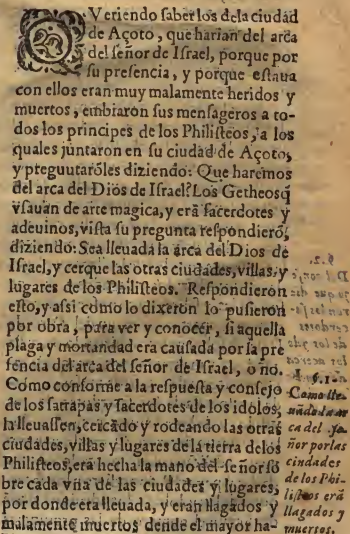 QVeriendo saber los dela ciudad
de Açoto, que harian del arca
del señor de Israel, porque por
su presencia, y porque estaua
con ellos eran muy malamente heridos y
muertos, embiaron sus mensageros a to-
dos los principes de los Philisteos, a los
quales juntaron en su ciudad de Açoto,
y preguutarõles diziendo: Que haremos
del arca del Dios de Israel? Los Getheos q̃
vsauan de arte magica, y erã sacerdotes y
adeuinos, vista su pregunta respondierõ,
diziendo: Sea lleuada la arca del Dios de
Israel, y cerque las otras ciudades, villas, y
lugares de los Philisteos. Respondieron
esto, y assi como lo dixeron lo pusieron
por obra, para ver y conocer, si aquella
plaga y mortandad era causada por la pre
sencia del arca del señor de Israel, o no.
Como conforme a la respuesta y consejo
de los satrapas y sacerdotes de los idolos,
la lleuassen, cercãdo y rodeando las otras
ciudades, villas y lugares de la tierra delos
Philisteos, erà hecha la mano del señor so
bre cada vna de las ciudades y lugares,
por donde era lleuada, y eran llagados y
malamente muertos dende el mayor ha-
§.1.
Como lle-
ca del se-
ñor por las
ciudades
de los Phi-
listeos erã
llagados y
muertos.